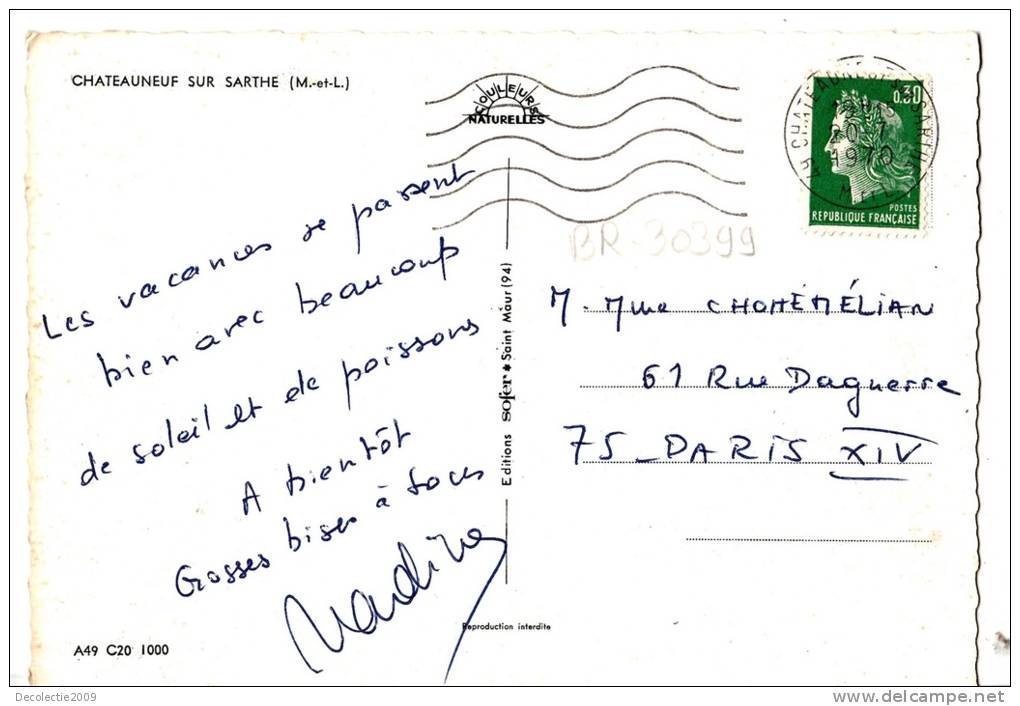 CHATEAUNEUF SUR SARTHE (M.-et-L.)
COULEURS
NATURELLES
0,30
20-7
1970
POSTES
REPUBLIQUE FRANÇAISE
BR-30399
Les vacances se passent
bien avec beaucoup
de soleil et de poissons
A bientôt
Grosses bises à tous
Nadine
Editions sofer ★ Saint Maur (94)
M. Mme CHOHÉMÉLIAN
61 Rue Daguerre
75 - PARIS XIV
Reproduction interdite
A49 C20 1000
Decolectie2009
delcampe.net